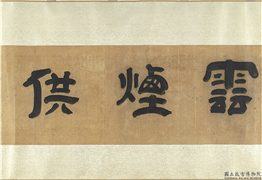 雲煙供
國立故宮博物院